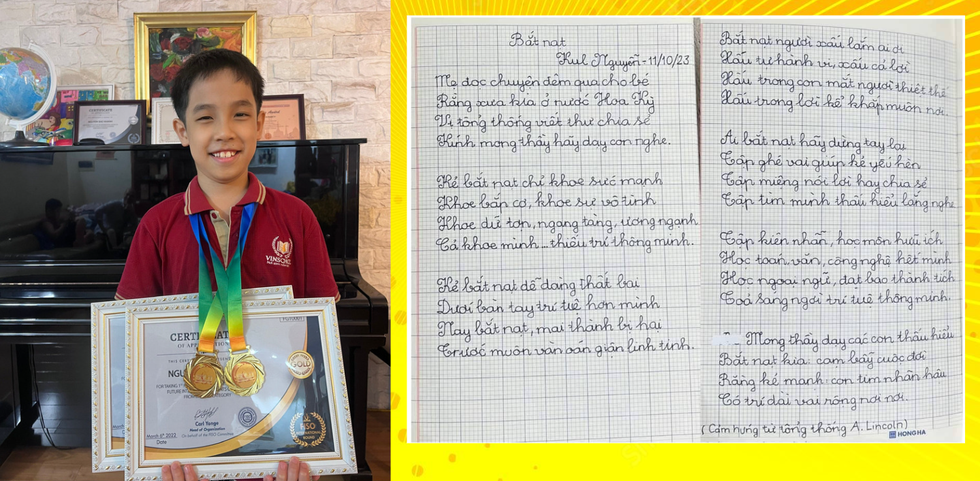 VINSCHO
CERTIFICAT
NGU
GOLD
Head of Organization
March 6th 2022
Date
Bắt nạt
Kul Nguyễn - 11/10/23
Mẹ đọc chuyện đêm qua cho bé
Rằng xưa kia ở nước Hoa Kỳ
Vị tổng thống viết thư chia sẻ
Kính mong thầy hãy dạy con nghe.
Kẻ bắt nạt chỉ khoe sức mạnh
Khoe bắp cơ, khoe sự vô tình
Khoe dữ tợn, ngang tàng, ương ngạnh
Cả khoe mình... thiếu trí thông minh.
Kẻ bắt nạt dễ dàng thất bại
Dưới bàn tay trí tuệ hơn mình
Nay bắt nạt, mai thành bị hại
Trước muôn vàn oán giận linh tinh.
Bắt nạt người xấu lắm ai ơi
Xấu từ hành vi, xấu cả lời
Xấu trong con mắt người thiệt thế
Xấu trong lời kể khắp muôn nơi.
Ai bắt nạt hãy dừng tay lại
Tập ghé vai giúp kẻ yếu hèn
Tập miệng nói lời hay chia sẻ
Tập tim mình thấu hiểu lắng nghe
Tập kiên nhẫn, học môn hữu ích
Học toán, văn, công nghệ hết mình
Học ngoại ngữ, đạt bao thành tích
Toả sáng ngời trí tuệ thông minh.
Mong thầy dạy các con thấu hiểu
Bắt nạt kia cạm bẫy cuộc đời
Rằng kẻ mạnh: con tim nhân hậu
Có trí dài vai rộng nơi nơi.
(Cảm hứng từ tổng thống A. Lincoln)
HONG HA